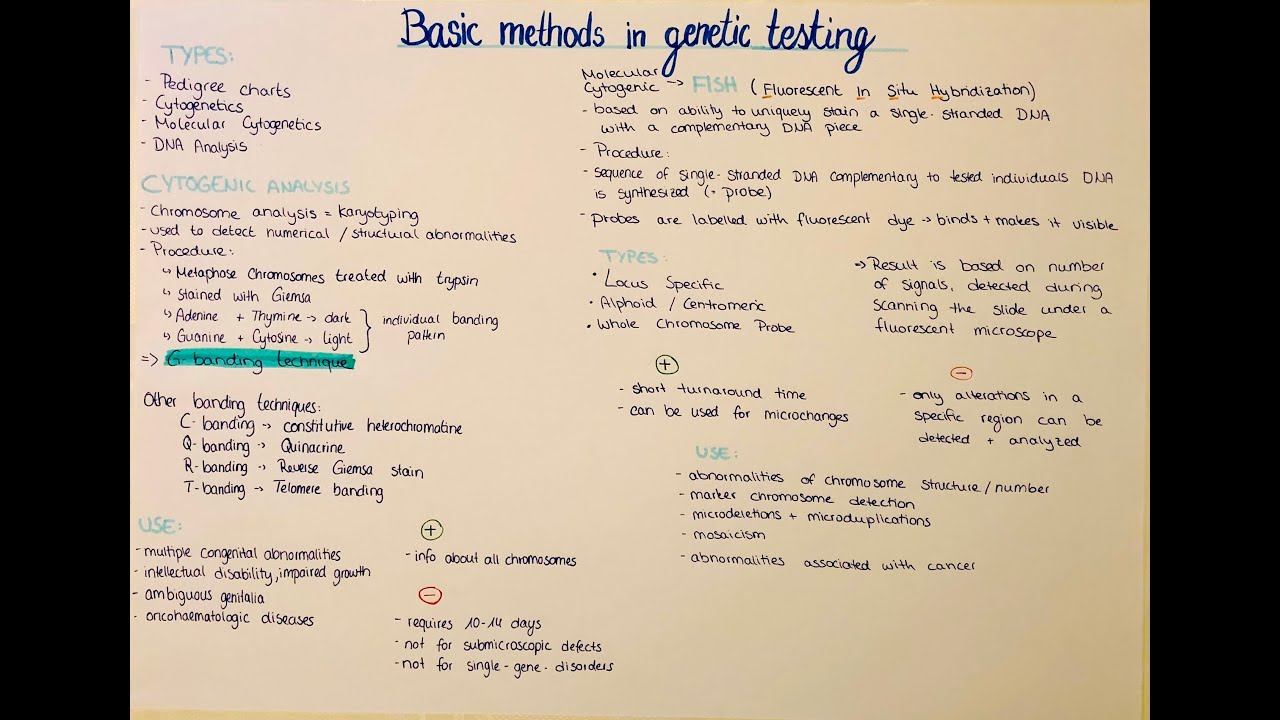 Basic methods in genetic testing
TYPES:
- Pedigree charts
- Cytogenetics
- Molecular Cytogenetics
- DNA Analysis
CYTOGENIC ANALYSIS
- Chromosome analysis = Karyotyping
- used to detect numerical / structural abnormalities
- Procedure:
↳ Metaphose Chromosomes treated with trypsin
↳ Stained with Giemsa
↳ Adenine + Thymine → dark
↳ Guanine + Cytosine → light
} individual banding
pattern
=> G-banding technique
Other banding techniques:
C-banding → constitutive heterochromatine
Q-banding → Quinacrine
R-banding → Reverse Giemsa stain
T-banding → Telomere banding
USE:
- multiple congenital abnormalities
- intellectual disability, impaired growth
- ambiguous genitalia
- oncohaematologic diseases
+
- info about all chromosomes
-
- requires 10-14 days
- not for submicroscopic defects
- not for single-gene-disorders
Molecular
Cytogenic → FISH (Fluorescent In Situ Hybridization)
- based on ability to uniquely stain a single-stranded DNA
with a complementary DNA piece
- Procedure:
- sequence of single-stranded DNA complementary to tested individuals DNA
is synthesized (· probe)
- probes are labelled with fluorescent dye → binds + makes it visible
TYPES:
• Locus Specific
• Alphoid / Centromeric
• Whole Chromosome Probe
=> Result is based on number
of signals, detected during
scanning the slide under a
fluorescent microscope
+
- short turnaround time
- can be used for microchanges
-
- only alterations in a
specific region can be
detected + analyzed
USE:
- abnormalities of chromosome structure/number
- marker chromosome detection
- microdeletions + microduplications
- mosaicism
- abnormalities associated with cancer